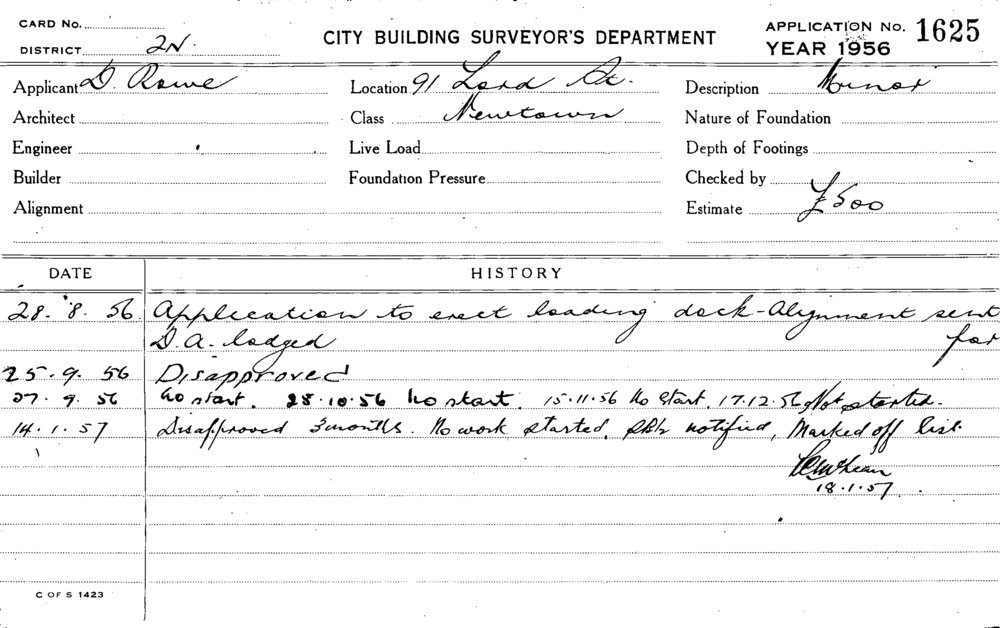 CARD No.
DISTRICT 2N.
CITY BUILDING SURVEYOR'S DEPARTMENT
APPLICATION No. 1625
YEAR 1956
Applicant D. Rowe Location 91 Lord St. Description Minor
Architect Class Newtown Nature of Foundation
Engineer Live Load Depth of Footings
Builder Foundation Pressure Checked by
Alignment Estimate £500
DATE HISTORY
28. 8. 56 Application to erect loading dock - Alignment sent for
D.A. lodged
25. 9. 56 Disapproved
27. 9. 56 No start. 25.10.56 No start. 15.11.56 No Start. 17.12.56 Not started.
14.1.57 Disapproved 3 months. No work started, notified, Marked off list.
18.1.57
C OF S 1423